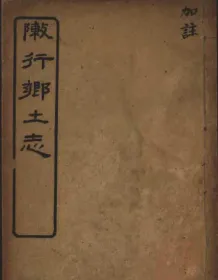 加註
敶行鄉土志